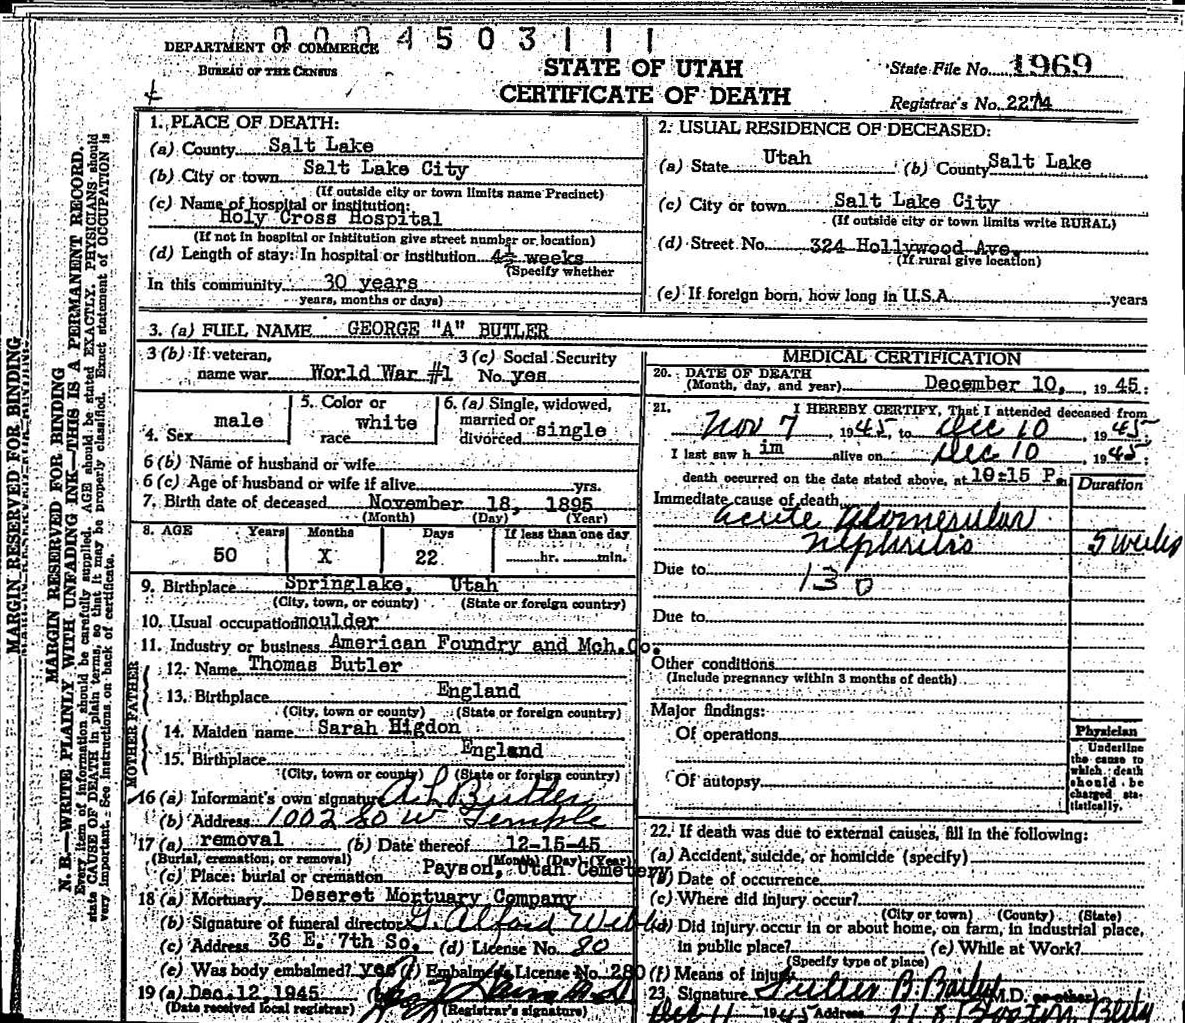 0004503111
DEPARTMENT OF COMMERCE
BUREAU OF THE CENSUS
STATE OF UTAH
CERTIFICATE OF DEATH
State File No. 1969
Registrar's No. 2274
MARGIN RESERVED FOR BINDING
MARGIN RESERVED FOR BINDING
N. B.—WRITE PLAINLY WITH UNFADING INK—THIS IS A PERMANENT RECORD.
Every item of information should be carefully supplied. AGE should be stated EXACTLY. PHYSICIANS should
state CAUSE OF DEATH in plain terms, so that it may be properly classified. Exact statement of OCCUPATION is
very important. See instructions on back of certificate.
1. PLACE OF DEATH:
(a) County Salt Lake
(b) City or town Salt Lake City
(If outside city or town limits name Precinct)
(c) Name of hospital or institution:
Holy Cross Hospital
(If not in hospital or institution give street number or location)
(d) Length of stay: In hospital or institution 4½ weeks
(Specify whether
In this community 30 years
years, months or days)
2. USUAL RESIDENCE OF DECEASED:
(a) State Utah (b) County Salt Lake
(c) City or town Salt Lake City
(If outside city or town limits write RURAL)
(d) Street No. 324 Hollywood Ave.
(If rural give location)
(e) If foreign born, how long in U.S.A. years
3. (a) FULL NAME GEORGE "A" BUTLER
3 (b) If veteran, name war World War #1
3 (c) Social Security No. yes
4. Sex male
5. Color or race white
6. (a) Single, widowed, married or divorced single
6 (b) Name of husband or wife
6 (c) Age of husband or wife if alive yrs.
7. Birth date of deceased November 18, 1895
(Month) (Day) (Year)
8. AGE Years Months Days If less than one day
50 X 22 hr. min.
9. Birthplace Springlake, Utah
(City, town, or county) (State or foreign country)
10. Usual occupation moulder
11. Industry or business American Foundry and Mch. Co.
FATHER
12. Name Thomas Butler
13. Birthplace England
(City, town or county) (State or foreign country)
MOTHER
14. Maiden name Sarah Higdon
15. Birthplace England
(City, town or county) (State or foreign country)
16 (a) Informant's own signature A L Butler
(b) Address 1002 So W Temple
17 (a) removal (b) Date thereof 12-15-45
(Burial, cremation, or removal) (Month) (Day) (Year)
(c) Place: burial or cremation Payson, Utah Cemetery
18 (a) Mortuary Deseret Mortuary Company
(b) Signature of funeral director G. Alford Webb
(c) Address 36 E. 7th So. (d) License No. 80
(e) Was body embalmed? yes (f) Embalmer's License No. 280
19 (a) Dec. 12, 1945
(Date received local registrar) (Registrar's signature)
MEDICAL CERTIFICATION
20. DATE OF DEATH
(Month, day, and year) December 10, 1945.
21. I HEREBY CERTIFY, That I attended deceased from
Nov 7, 1945, to Dec 10, 1945
I last saw him alive on Dec 10 1945
death occurred on the date stated above, at 10:15 P.
Duration
Immediate cause of death
acute glomerular
nephritis 5 weeks
Due to 130
Due to
Other conditions
(Include pregnancy within 3 months of death)
Major findings:
Of operations
Of autopsy
Physician
Underline
the cause to
which death
should be
charged sta-
tistically.
22. If death was due to external causes, fill in the following:
(a) Accident, suicide, or homicide (specify)
(b) Date of occurrence
(c) Where did injury occur?
(City or town) (County) (State)
(d) Did injury occur in or about home, on farm, in industrial place,
in public place? (e) While at Work?
(Specify type of place)
(f) Means of injury
23. Signature Fuller B. Bailey M.D. or other)
Dec 11 1945 Address 718 Boston Bldg